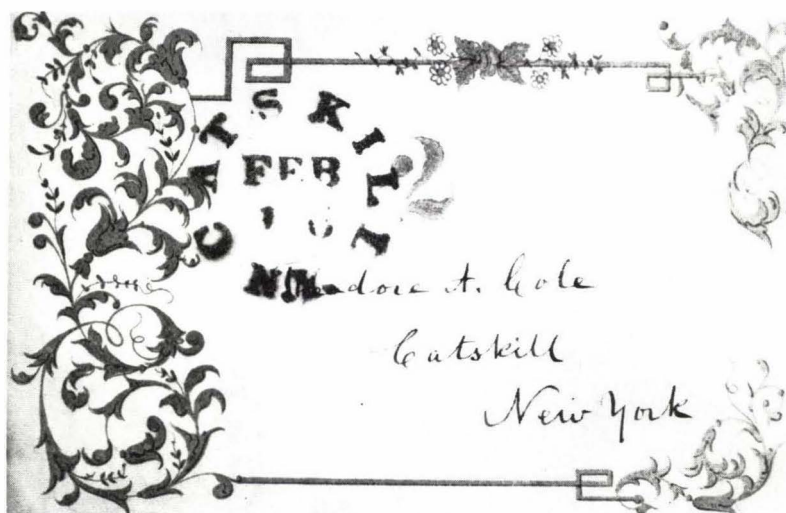 CATSKILL
FEB
2
A. Cole
Catskill
New York